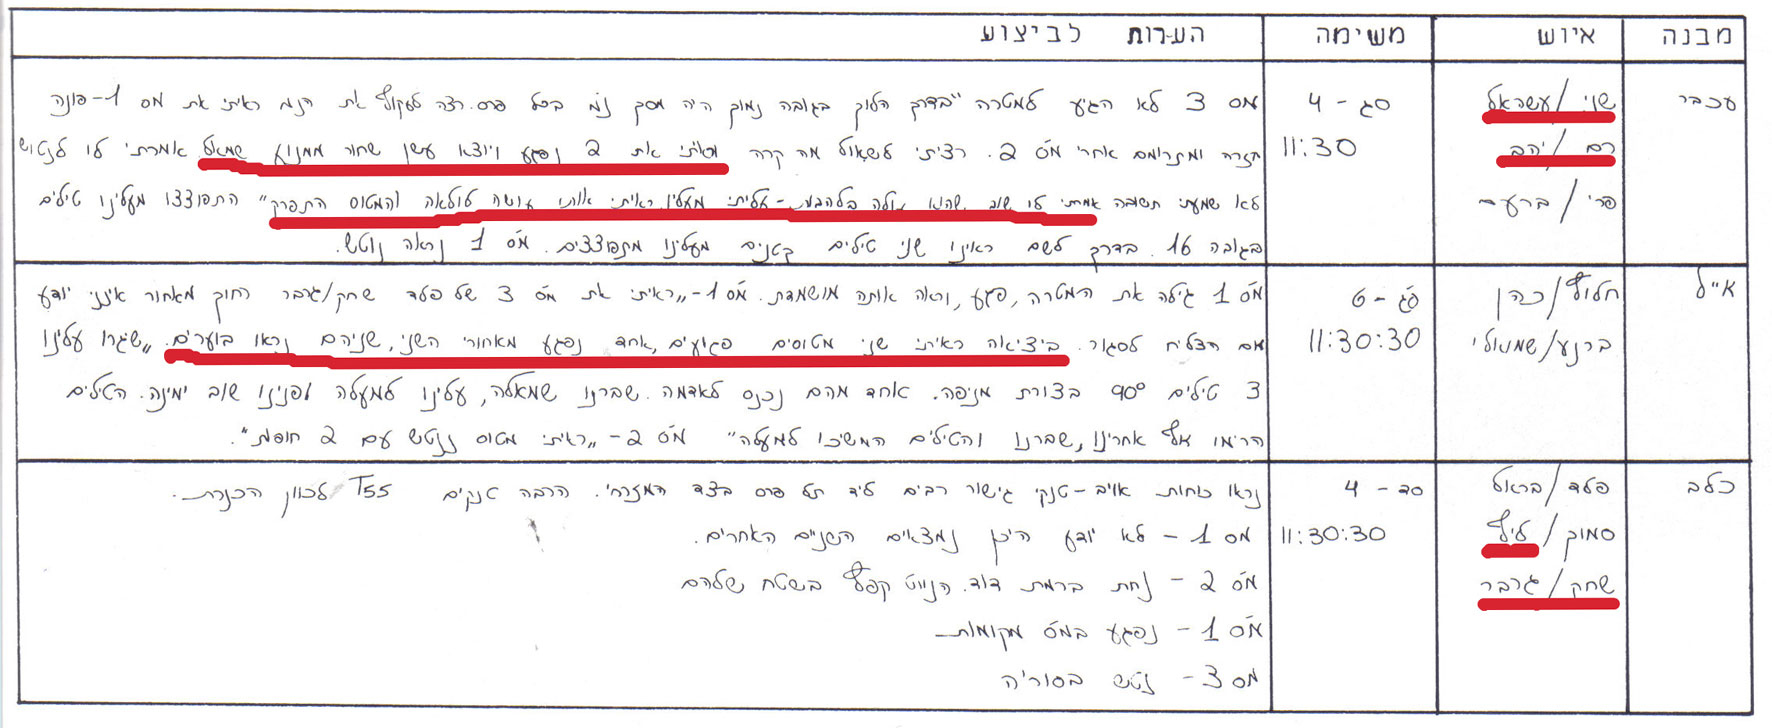 מבנה איוש משימה הערות לביצוע
עכבר שני/עשהאל סג - 4 מס 3 לא הגיע למטרה "בדרך הלוך בגובה נמוך היה מסך נ"מ בכל פרס. רצה לעקוף את הנמ ראיתי את מס 1 - פונה
רם/יהב 11:30 חזרה ומתרומם אחרי מס 2. רציתי לשאול מה קרה ראיתי את 2 נפגע ויוצא עשן שחור ממנוע שמאל אמרתי לו לנטוש
פרי/ברעם לא שמעתי תשובה אמרתי לו שוב שהוא עולה בלהבות - עליתי מעליו ראיתי אותו עושה לולאה והמטוס התפרק" התפוצצו מעלינו טילים
בגובה 16. בדרך לשם ראינו שני טילים קטנים מעלינו מתפוצצים. מס 1 נראה נוטש.
א"ל חלוף/כהן סג - 6 מס 1 גילה את המטרה, פגע, וראה אותה מושמדת. מס 1 - "ראיתי את מס 3 של פלד שחק/גרבר רחוק מאחור אינני יודע
ברנע/שמואלי 11:30:30 אם הצליח לסגור. ביציאה ראיתי שני מטוסים פגועים, אחד נפגע מאחורי השני, שניהם נראו בוערים. "שגרו עלינו
3 טילים 90° בצורת מניפה. אחד מהם נכנס לאדמה. שברנו שמאלה, עלינו למעלה ופנינו שוב ימינה. הטילים
הרימו אף אחרינו, שברנו והטילים המשיכו למעלה" מס 2 - "ראיתי מטוס ננטש עם 2 חופות".
כלב פלד/בראול סד - 4 נראו כוחות אויב - טנקי גישור רבים ליד תל פרס בצד המזרחי. הרבה טנקים T55 לכוון הכנרת.
סמוך/ליף 11:30:30 מס 1 - לא יודע היכן נמצאים השניים האחרים.
שחק/גרבר מס 2 - נחת ברמת דוד. הנווט קפץ בשטח שלהם
מס 1 - נפגע במס מקומות
מס 3 - נטש בסוריה